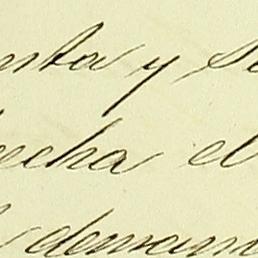 enta y se
echa el
demand